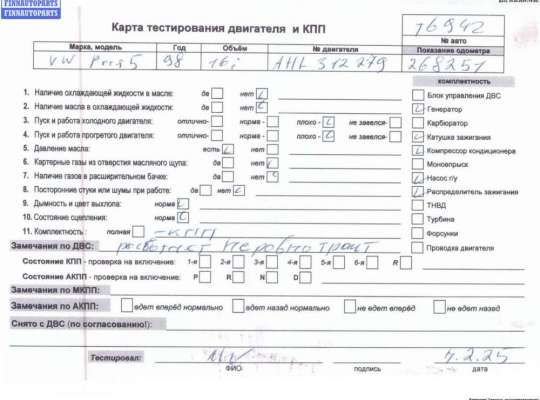 FINNAUTOPARTS
FINNAUTOPARTS
Карта тестирования двигателя и КПП
76942
№ авто
Марка, модель Год Объём № двигателя Показание одометра
VW 98 1.6i AHL 312279 268251
комплектность
1. Наличие охлаждающей жидкости в масле: да нет
Блок управления ДВС
2. Наличие масла в охлаждающей жидкости: да нет
Генератор
3. Пуск и работа холодного двигателя: отлично- норма - плохо - не завелся-
Карбюратор
4. Пуск и работа прогретого двигателя: отлично- норма - плохо - не завелся-
Катушка зажигания
5. Давление масла: есть нет
Компрессор кондиционера
6. Картерные газы из отверстия масляного щупа: да нет
Моновпрыск
7. Наличие газов в расширительном бачке: да нет
Насос г/у
8. Посторонние стуки или шумы при работе: да нет
Распределитель зажигания
9. Дымность и цвет выхлопа: норма
ТНВД
10. Состояние сцепления: норма
Турбина
11. Комплектность: полная -КПП
Форсунки
Замечания по ДВС: работает неровно троит
Проводка двигателя
Состояние КПП - проверка на включение: 1-я 2-я 3-я 4-я 5-я 6-я R
Состояние АКПП - проверка на включение: P R N D
Замечания по МКПП:
Замечания по АКПП: едет вперёд нормально едет назад нормально не едет вперёд не едет назад
Снято с ДВС (по согласованию!):
Тестировал: 4.2.25
ФИО подпись дата